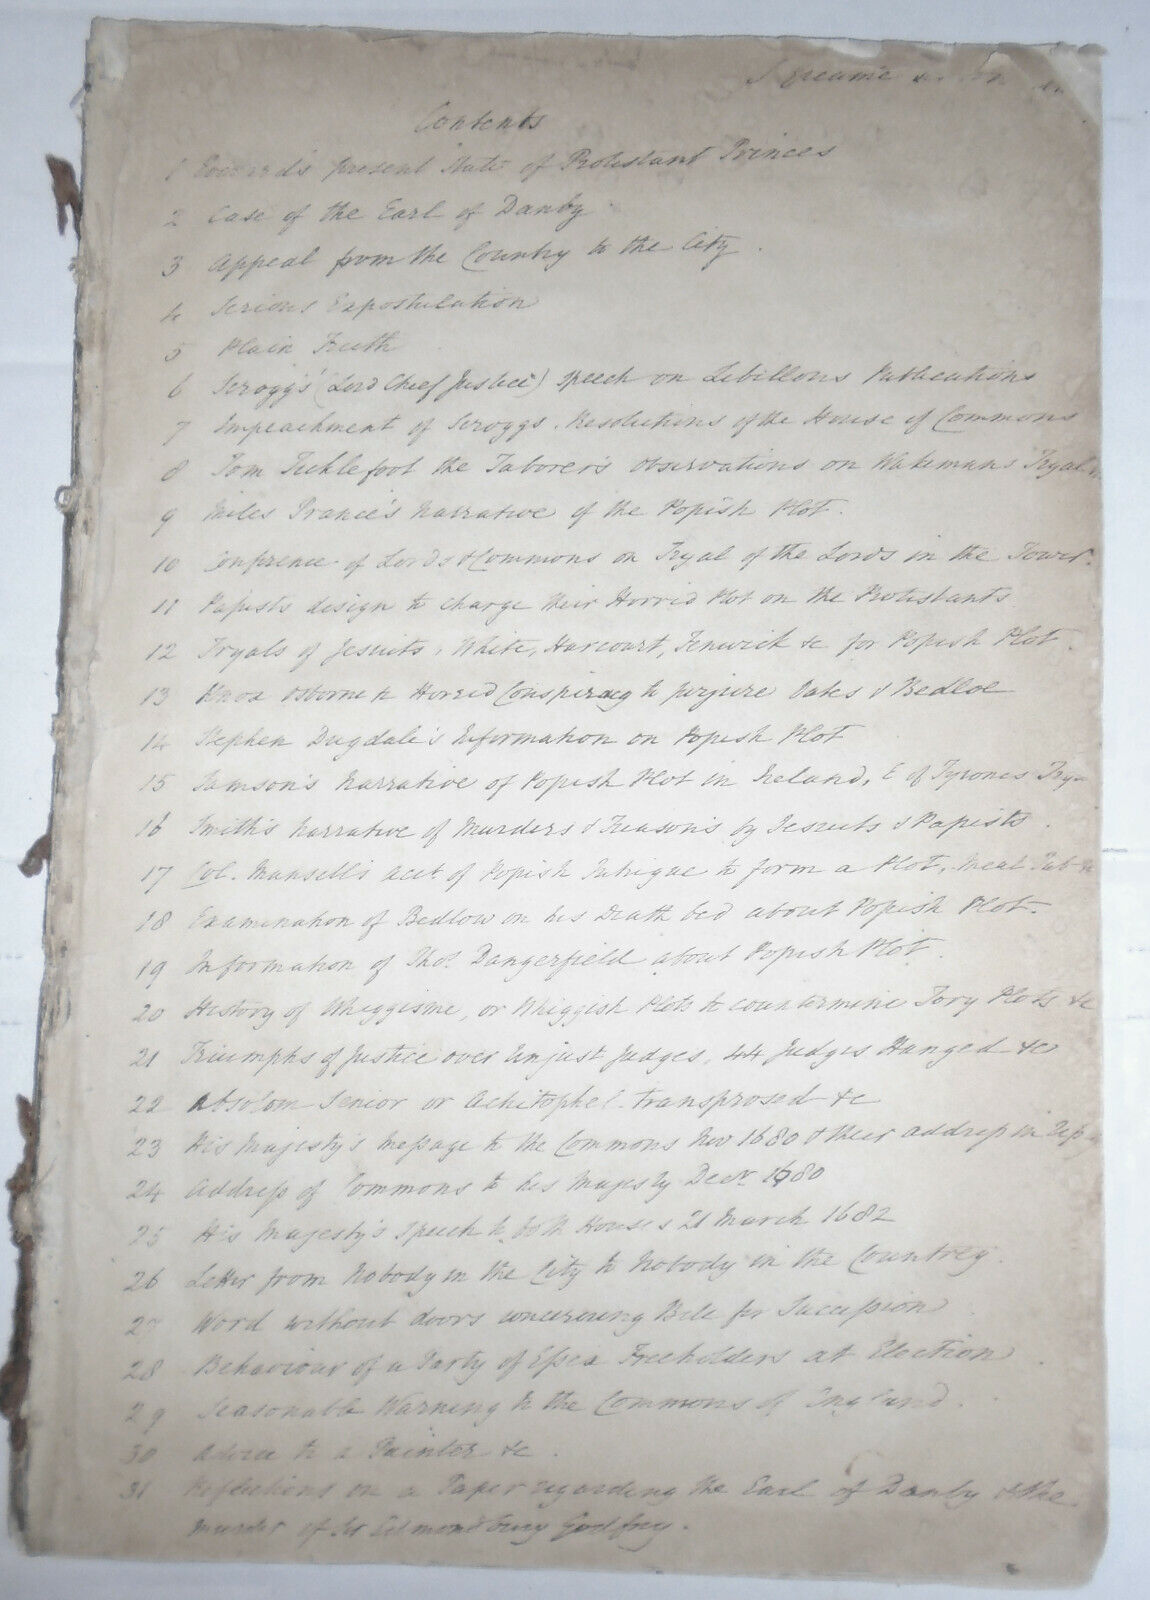 Contents
1 present State of Protestant Princes
2 Case of the Earl of Danby.
3 Appeal from the Country to the City.
4 Serious Expostulation
5 Plain Truth
6 Scroggs' (Lord Chief Justice) speech on Libillous Publications
7 Impeachment of Scroggs. Resolutions of the House of Commons
8 Tom Ticklefoot the Taborer's observations on Wakemans Tryal
9 Miles Prance's Narrative of the Popish Plot.
10 Confrence of Lords & Commons on Tryal of the Lords in the Tower.
11 Papists design to charge their Horrid Plot on the Protestants
12 Tryals of Jesuits, White, Harcourt, Fenwick &c for Popish Plot.
13 Knox Osborne &c Horrid Conspiracy to perjure Oates & Bedloe
14 Stephen Dugdale's Information on Popish Plot
15 Samson's Narrative of Popish Plot in Ireland, E of Tyrones Trya
16 Smith's Narrative of Murders & Treason's by Jesuits & Papists.
17 Col. Mansell's acct. of Popish Intrigue to form a Plot, Meal Tub
18 Examination of Bedlow on his Death bed about Popish Plot.
19 Information of Thos. Dangerfield about Popish Plot.
20 History of Whiggisme, or Whiggish Plots to countermine Tory Plots &c
21 Triumphs of Justice over Unjust Judges, 44 Judges Hanged &c
22 Absolom Senior or Achitophel transprosed &c
23 His Majesty's Message to the Commons Nov 1680 & their address in
24 Address of Commons to his Majesty Decr. 1680
25 His Majesty's Speech to both Houses 21 March 1682
26 Letter from Nobody in the City to Nobody in the Countrey.
27 Word without doors concerning Bill for Succession
28 Behaviour of a Party of Essex Freeholders at Election.
29 Seasonable Warning to the Commons of England.
30 Advice to a Painter &c.
31 Reflections on a Paper regarding the Earl of Danby & the
Murder of Sir Edmondbury Godfrey.